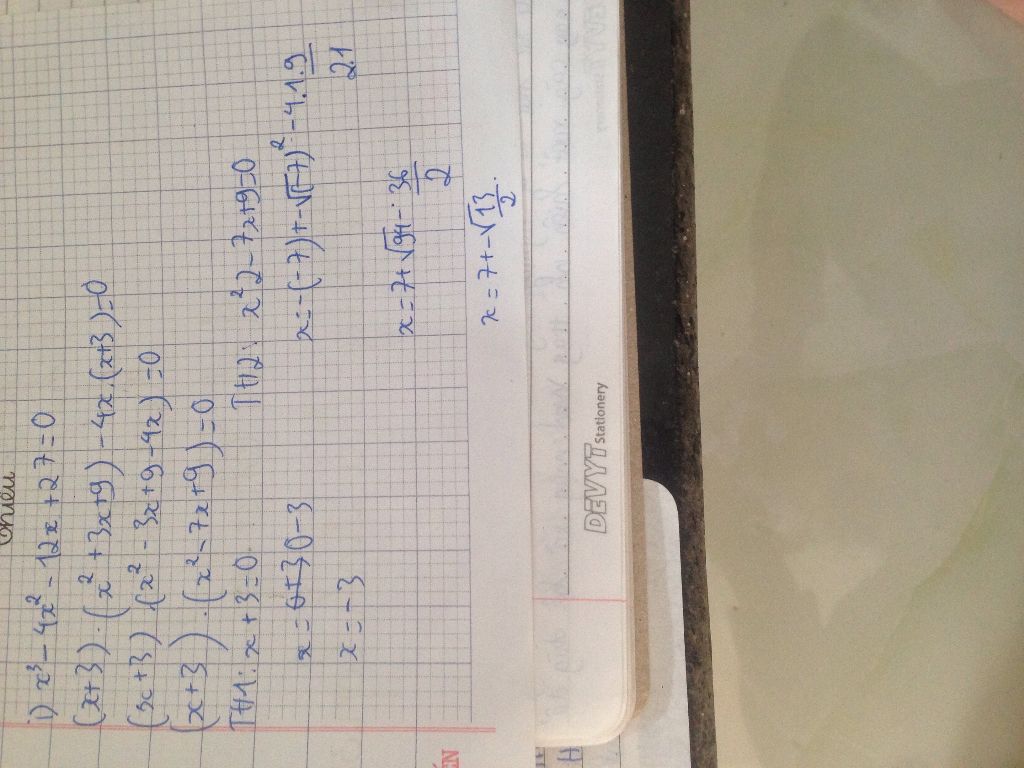 i) x³ - 4x² - 12x + 27 = 0
(x+3).(x² + 3x + 9) - 4x.(x+3) = 0
(3x+3).(x² - 3x + 9 - 4x) = 0
(x+3).(x² - 7x + 9) = 0
TH1: x + 3 = 0 TH2: x²2 - 7x + 9 = 0
x = 0 - 3 x = -(-7) + -√(-7)² - 4.1.9 / 2.1
x = -3 x = 7 + √94 - 36 / 2
x = 7 + -√13/2.
DEVYT Stationery